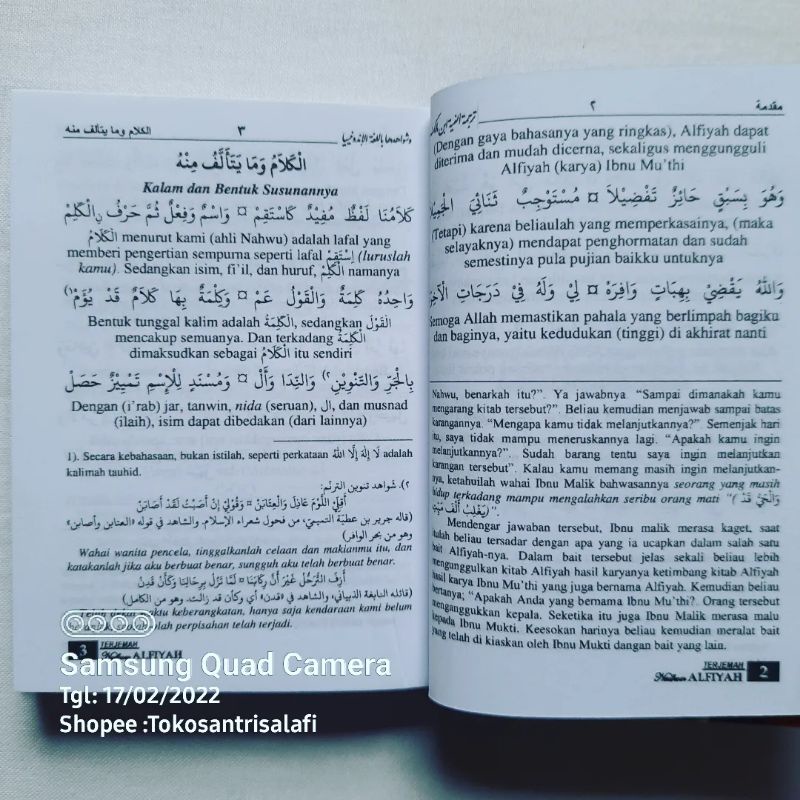 مقدمة ٢
(Dengan gaya bahasanya yang ringkas), Alfiyah dapat
diterima dan mudah dicerna, sekaligus menggungguli
Alfiyah (karya) Ibnu Mu'thi
وَهُوَ بِسَبْقٍ حَائِزٌ تَفْضِيْلاَ ¤ مُسْتَوْجِبٌ ثَنَائِيَ
(Tetapi) karena beliaulah yang memperkasainya, (maka
selayaknya) mendapat penghormatan dan sudah
semestinya pula pujian baikku untuknya
وَاللهُ يَقْضِيْ بِهِبَاتٍ وَافِرَهْ ¤ لِيْ وَلَهُ فِيْ دَرَجَاتِ
Semoga Allah memastikan pahala yang berlimpah bagiku
dan baginya, yaitu kedudukan (tinggi) di akhirat nanti
Nahwu, benarkah itu?". Ya jawabnya "Sampai dimanakah kamu
mengarang kitab tersebut?". Beliau kemudian menjawab sampai batas
karangannya. "Mengapa kamu tidak melanjutkannya?". Semenjak hari
itu, saya tidak mampu meneruskannya lagi. "Apakah kamu ingin
melanjutkannya?". Sudah barang tentu saya ingin melanjutkan
karangan tersebut". Kalau kamu memang masih ingin melanjutkan-
nya, ketahuilah wahai Ibnu Malik bahwasannya seorang yang masih
hidup terkadang mampu mengalahkan seribu orang mati " (وَالْحَيُّ قَدْ
يَغْلِبُ أَلْفَ مَيِّتٍ)".
Mendengar jawaban tersebut, Ibnu malik merasa kaget, saat
itulah beliau tersadar dengan apa yang ia ucapkan dalam salah satu
bait Alfiyah-nya. Dalam bait tersebut jelas sekali beliau lebih
mengunggulkan kitab Alfiyah hasil karyanya ketimbang kitab Alfiyah
hasil karya Ibnu Mu'thi yang juga bernama Alfiyah. Kemudian beliau
bertanya; "Apakah Anda yang bernama Ibnu Mu'thi?. Orang tersebut
menganggukkan kepala. Seketika itu juga Ibnu Malik merasa malu
kepada Ibnu Mukti. Keesokan harinya beliau kemudian meralat bait
yang telah di kiaskan oleh Ibnu Mukti dengan bait yang lain.
TERJEMAH
Nadhom ALFIYAH 2
وشواهدها باللغة الإندونيسيا ٣ الكلام وما يتألف منه
اَلْكَلاَمُ وَمَا يَتَأَلَّفُ مِنْهُ
Kalam dan Bentuk Susunannya
كَلاَمُنَا لَفْظٌ مُفِيْدٌ كَاسْتَقِمْ ¤ وَاسْمٌ وَفِعْلٌ ثُمَّ حَرْفُ ࣙالْكَلِمْ
اَلْكَلاَمُ menurut kami (ahli Nahwu) adalah lafal yang
memberi pengertian sempurna seperti lafal اِسْتَقِمْ (luruslah
kamu). Sedangkan isim, fi'il, dan huruf, اَلْكَلِمُ namanya
وَاحِدُهُ كَلِمَةٌ وَالْقَوْلُ عَمْ ¤ وَكِلْمَةٌ بِهَا كَلاَمٌ قَدْ يُؤَمْ (١
Bentuk tunggal kalim adalah اَلْكَلِمَةُ, sedangkan اَلْقَوْلُ
mencakup semuanya. Dan terkadang اَلْكَلِمَةُ
dimaksudkan sebagai اَلْكَلاَمُ itu sendiri
بِالْجَرِّ وَالتَّنْوِيْنِ (٢ وَالنِّدَا وَأَلْ ¤ وَمُسْنَدٍ لِلْإِسْمِ تَمْيِيْزٌ حَصَلْ
Dengan (i'rab) jar, tanwin, nida (seruan), ال, dan musnad
(ilaih), isim dapat dibedakan (dari lainnya)
1). Secara kebahasaan, bukan istilah, seperti perkataan لاَ إِلهَ إِلاَّ اللهُ adalah
kalimah tauhid.
٢). شواهد تنوين الترنم:
أَقِلِّي اللَّوْمَ عَاذِلَ وَالْعِتَابَنْ ¤ وَقُوْلِيْ إِنْ أَصَبْتُ لَقَدْ أَصَابَنْ
(قاله جرير بن عطية التميمي، من فحول شعراء الإسلام. والشاهد في قوله «العتابن وأصابن»
وهو من بحر الوافر)
Wahai wanita pencela, tinggalkanlah celaan dan makianmu itu, dan
katakanlah jika aku berbuat benar, sungguh aku telah berbuat benar.
أَزِفَ التَّرَحُّلُ غَيْرَ أَنَّ رِكَابَنَا ¤ لَمَّا تَزُلْ بِرِحَالِنَا وَكَأَنْ قَدِنْ
(قائله النابغة الذبياني، والشاهد في «قدن» أي وكأن قد زالت. وهو من الكامل)
keberangkatan, hanya saja kendaraan kami belum
perpisahan telah terjadi.
3 TERJEMAH
Nadhom ALFIYAH
Samsung Quad Camera
Tgl: 17/02/2022
Shopee :Tokosantrisalafi